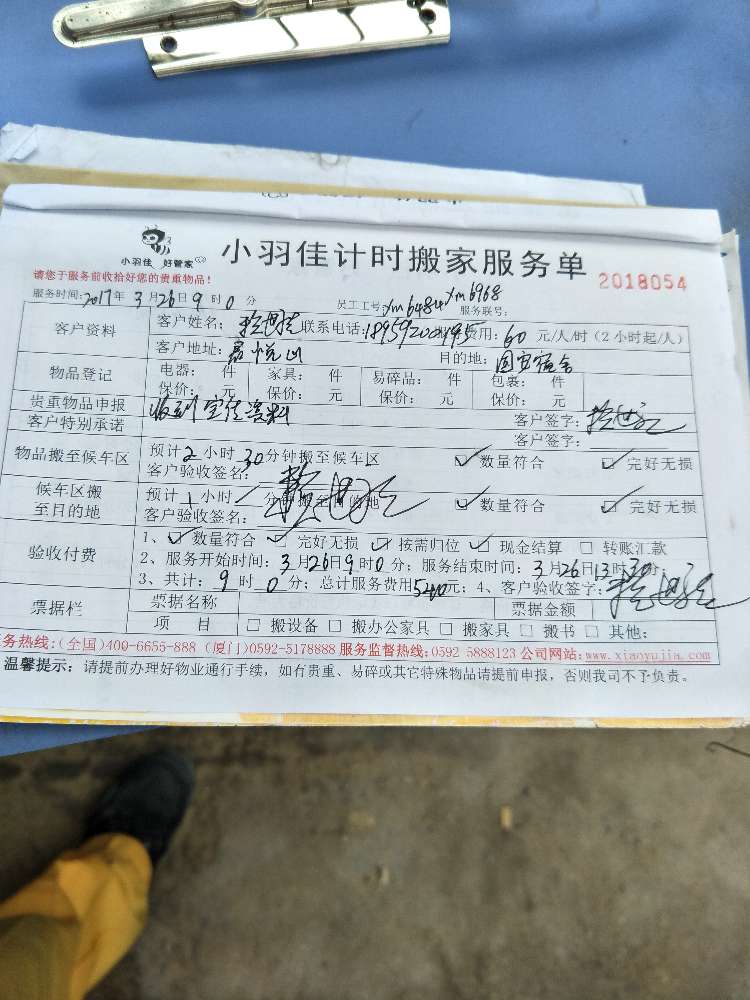 小羽佳 好管家
小羽佳计时搬家服务单
2018054
请您于服务前收拾好您的贵重物品!
服务时间:2017年3月26日9时0分 员工工号:xm6484 xm6968 服务联号:
客户资料
客户姓名: 联系电话: 费用:60元/人/时(2小时起/人)
客户地址: 目的地:
物品登记
电器: 件 家具: 件 易碎品: 件 包裹: 件
保价: 元 保价: 元 保价: 元 保价: 元
贵重物品申报
收到 资料
客户签字:
客户特别承诺
客户签字:
物品搬至候车区
预计2小时30分钟搬至候车区 ☑数量符合 ☑完好无损
客户验收签名:
候车区搬至目的地
预计1小时 分钟搬至目的地 ☑数量符合 ☑完好无损
客户验收签名:
验收付费
1、☑数量符合 ☑完好无损 ☑按需归位 ☑现金结算 □转账汇款
2、服务开始时间:3月26日9时0分;服务结束时间:3月26日13时30分;
3、共计:9时0分;总计服务费用540元;4、客户验收签字:
票据栏
票据名称 票据金额
项 目 □搬设备 □搬办公家具 □搬家具 □搬书 □其他:
务热线:(全国)400-6655-888 (厦门)0592-5178888 服务监督热线:0592 5888123 公司网站:www.xiaoyujia.com
温馨提示:请提前办理好物业通行手续,如有贵重、易碎或其它特殊物品请提前申报,否则我司不予负责。